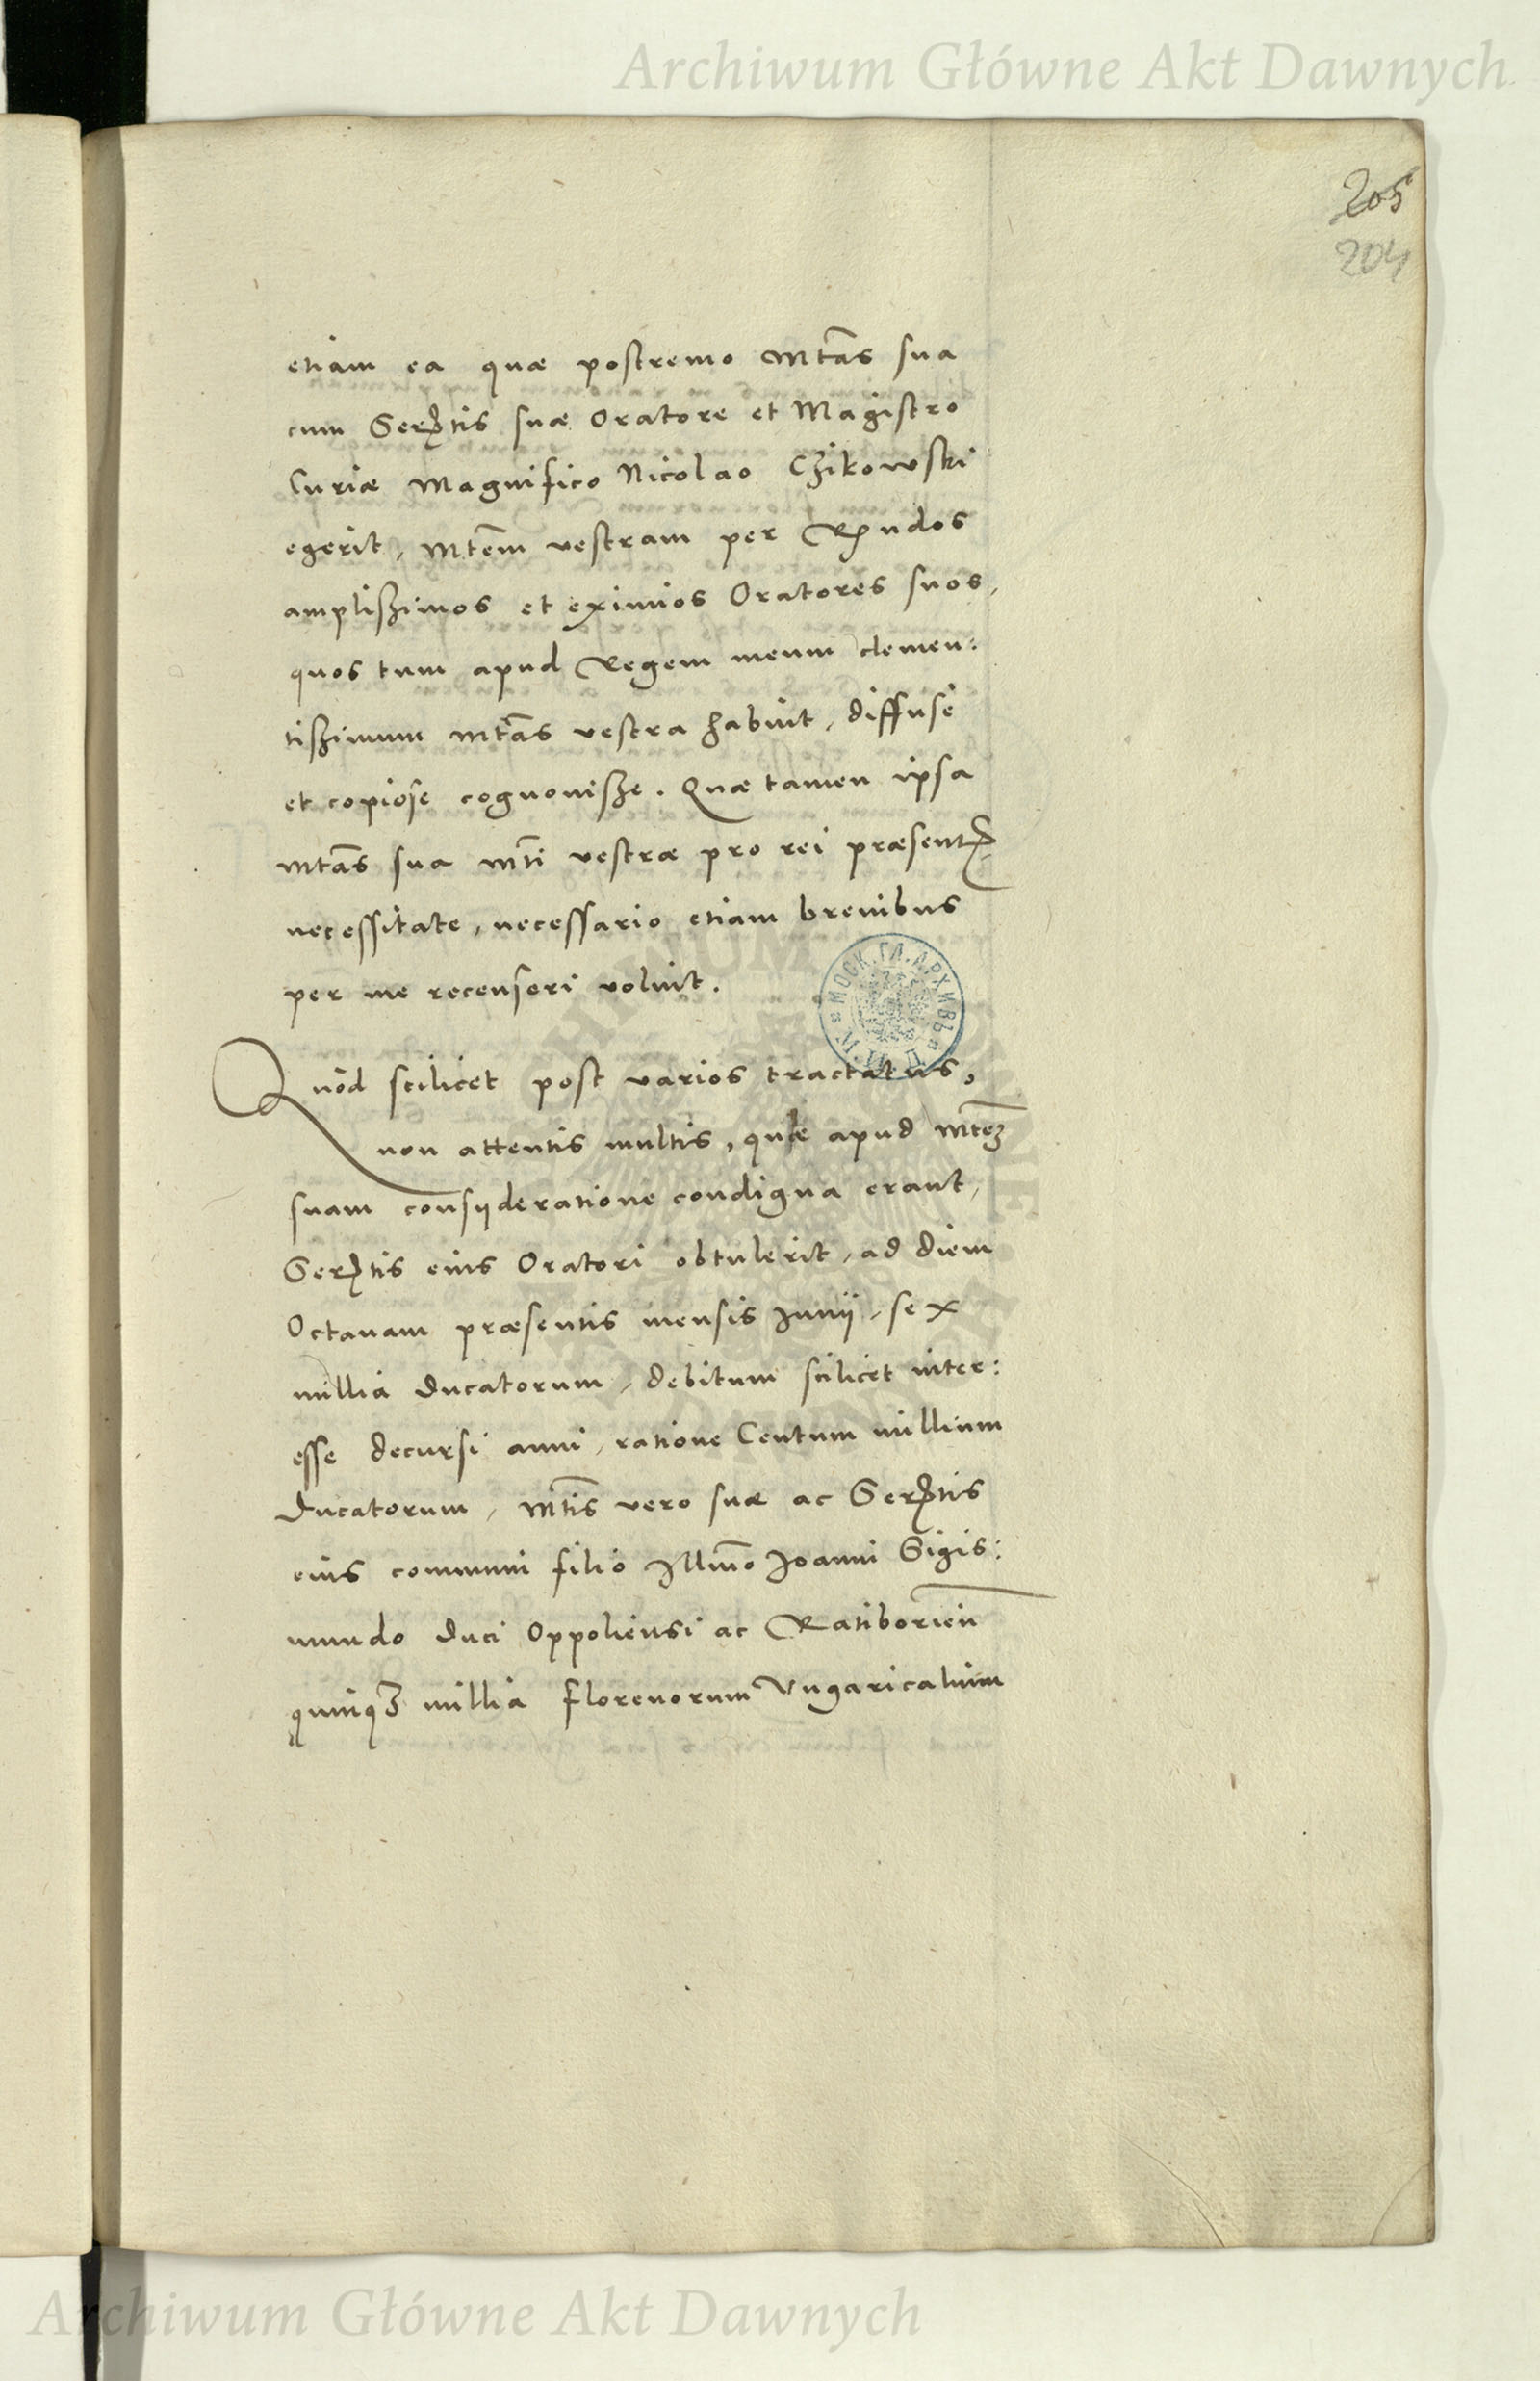 Archiwum Główne Akt Dawnych
205
204
etiam ea quæ postremo Mtas sua
cum Sertis suæ Oratore et Magistro
Curiæ Magnifico Nicolao Czikowski
egerit, Mtem vestram per Rndos
amplissimos et eximios Oratores suos,
quos tum apud Regem meum clemen:
tissimum Mtas vestra habuit, diffuse
et copiose cognovisse. Quæ tamen ipsa
Mtas sua Mti vestræ pro rei præsentis
necessitate, necessario etiam brevibus
per me recenseri voluit.
МОСК. ГЛ. АРХИВЪ
Quod scilicet post varios tractatus,
non attentis multis, quæ apud Mtem
suam consyderatione condigna erant,
Sertis eius Oratori obtulerit, ad diem
Octavam præsentis mensis Junij, sex
millia Ducatorum, debitum scilicet inter:
esse decursi anni, ratione Centum millium
Ducatorum, Mtis vero suæ ac Sertis
eius communi filio Illmo Joanni Sigis:
mundo Duci Oppoliensi ac Ratiborien
quinq3 millia florenorum Vngaricalium
Archiwum Główne Akt Dawnych